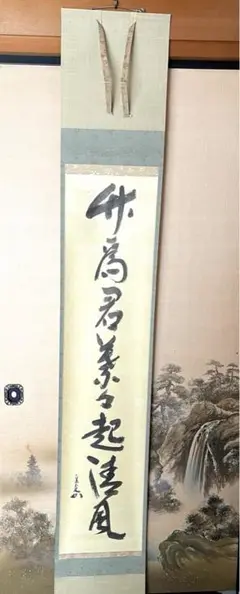 竹為君葉々起清風